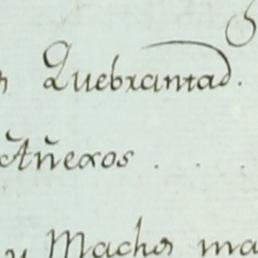 Quebrantad.
Añexos . . .
y Machos ma